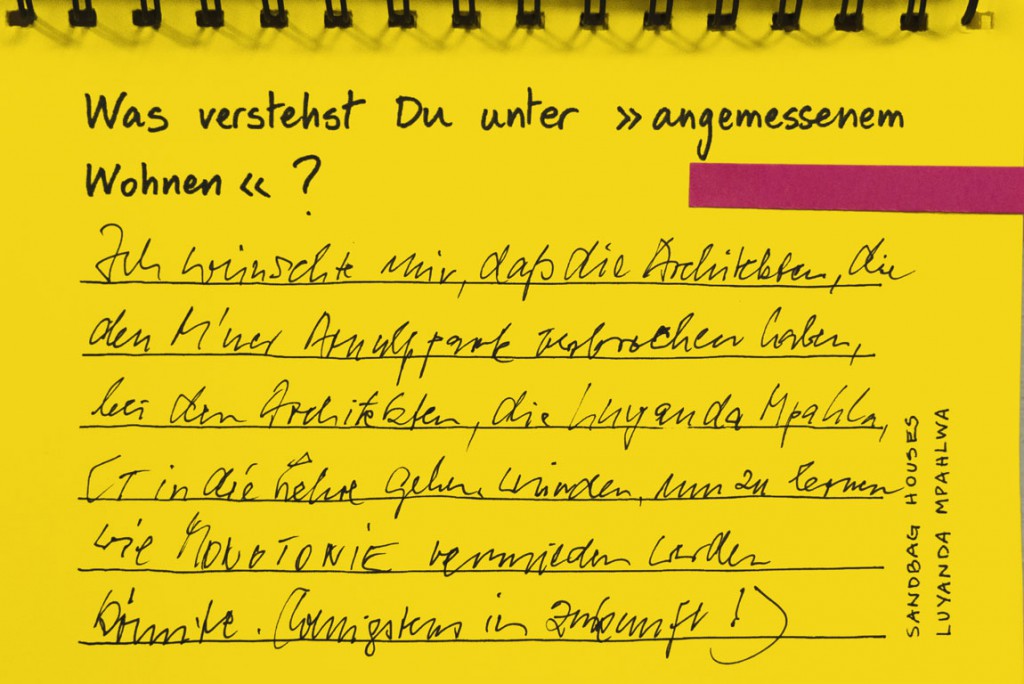 Was verstehst Du unter »angemessenem
Wohnen« ?
Ich wünschte mir, daß die Architekten, die
den M'ner Arnulfpark verbrochen haben,
bei den Architekten, die Luyanda Mpahlwa,
CT in die Lehre gehen würden, um zu lernen
wie MONOTONIE vermieden werden
könnte. (Wenigstens in Zukunft!)
SANDBAG HOUSES
LUYANDA MPAHLWA